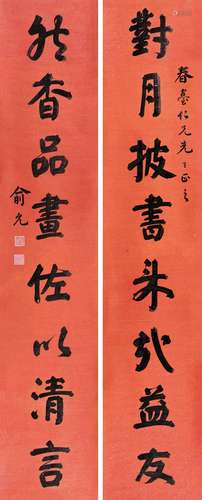 春臺仁兄先生正之
對月披書来益友
然香品畫佐以清言
俞